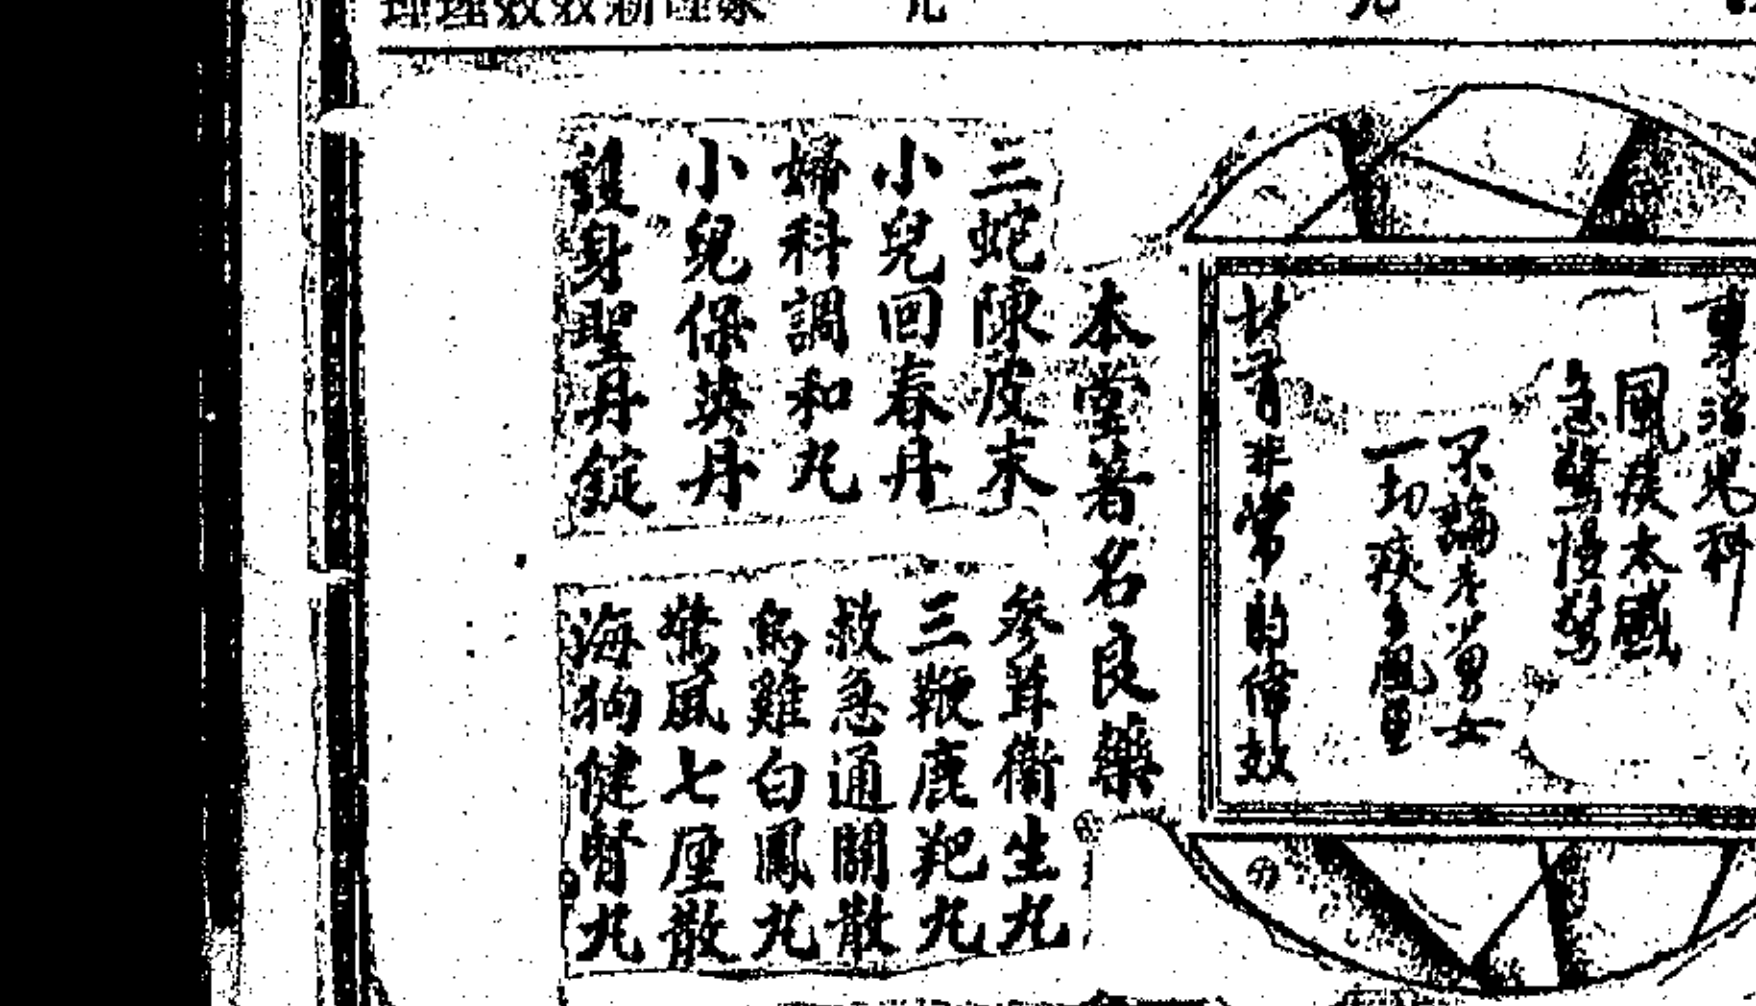 專治兒科
風痰太盛
急驚慢驚
不論老少男女
一切痰多風
非常的偉效
本堂著名良藥
三蛇陳皮末
小兒回春丹
婦科調和丸
小兒保英丹
護身聖丹錠
參茸衛生丸
三鞭鹿羓丸
救急通關散
烏雞白鳳丸
驚風七厘散
海狗健腎丸